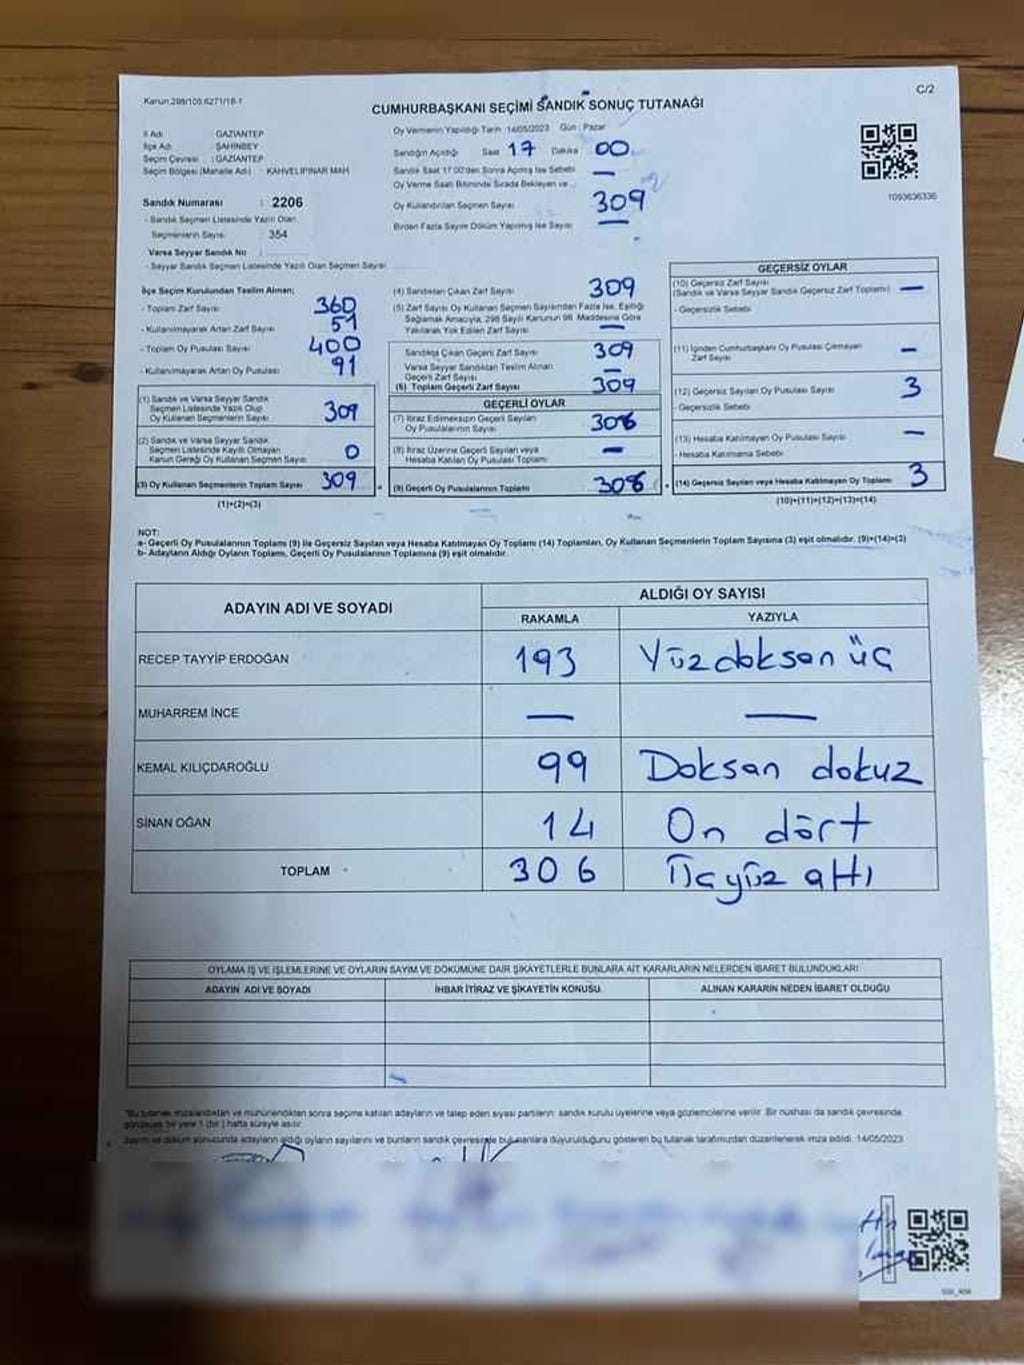 Karun:298/105.6271/18-1
C/2
CUMHURBAŞKANI SEÇİMİ SANDIK SONUÇ TUTANAĞI
İl Adı : GAZİANTEP
İlçe Adı : ŞAHİNBEY
Seçim Çevresi : GAZİANTEP
Seçim Bölgesi (Mahalle Adı) : KAHVELİPINAR MAH.
Sandık Numarası : 2206
- Sandık Seçmen Listesinde Yazılı Olan
Seçmenlerin Sayısı : 354
Varsa Seyyar Sandık No :
- Seyyar Sandık Seçmen Listesinde Yazılı Olan Seçmen Sayısı
Oy Vermenin Yapıldığı Tarih : 14/05/2023 Gün : Pazar
Sandığın Açıldığı Saat 17 Dakika 00
Sandık Saat 17:00'den Sonra Açılmış İse Sebebi —
Oy Verme Saati Bitiminde Sırada Bekleyen ve...
Oy Kullandırılan Seçmen Sayısı 309
Birden Fazla Sayım Döküm Yapılmış İse Sayısı —
1093636336
İlçe Seçim Kurulundan Teslim Alınan;
- Toplam Zarf Sayısı 360
- Kullanılmayarak Artan Zarf Sayısı 51
- Toplam Oy Pusulası Sayısı 400
- Kullanılmayarak Artan Oy Pusulası 91
(1) Sandık ve Varsa Seyyar Sandık
Seçmen Listesinde Yazılı Olup
Oy Kullanan Seçmenlerin Sayısı 309
(2) Sandık ve Varsa Seyyar Sandık
Seçmen Listesinde Kayıtlı Olmayan
Kanun Gereği Oy Kullanan Seçmen Sayısı 0
(3) Oy Kullanan Seçmenlerin Toplam Sayısı 309
(1)+(2)=(3)
(4) Sandıktan Çıkan Zarf Sayısı 309
(5) Zarf Sayısı Oy Kullanan Seçmen Sayısından Fazla İse, Eşitliği
Sağlamak Amacıyla, 298 Sayılı Kanunun 98. Maddesine Göre
Yakılarak Yok Edilen Zarf Sayısı —
Sandıkta Çıkan Geçerli Zarf Sayısı 309
Varsa Seyyar Sandıktan Teslim Alınan
Geçerli Zarf Sayısı —
(6) Toplam Geçerli Zarf Sayısı 309
GEÇERLİ OYLAR
(7) İtiraz Edilmeksizin Geçerli Sayılan
Oy Pusulalarının Sayısı 306
(8) İtiraz Üzerine Geçerli Sayılan veya
Hesaba Katılan Oy Pusulası Toplamı —
(9) Geçerli Oy Pusulalarının Toplamı 306
GEÇERSİZ OYLAR
(10) Geçersiz Zarf Sayısı
(Sandık ve Varsa Seyyar Sandık Geçersiz Zarf Toplamı) —
- Geçersizlik Sebebi
(11) İçinden Cumhurbaşkanı Oy Pusulası Çıkmayan
Zarf Sayısı —
(12) Geçersiz Sayılan Oy Pusulası Sayısı 3
- Geçersizlik Sebebi
(13) Hesaba Katılmayan Oy Pusulası Sayısı —
- Hesaba Katılmama Sebebi
(14) Geçersiz Sayılan veya Hesaba Katılmayan Oy Toplamı 3
(10)+(11)+(12)+(13)=(14)
NOT:
a- Geçerli Oy Pusulalarının Toplamı (9) ile Geçersiz Sayılan veya Hesaba Katılmayan Oy Toplamı (14) Toplamları, Oy Kullanan Seçmenlerin Toplam Sayısına (3) eşit olmalıdır. (9)+(14)=(3)
b- Adayların Aldığı Oyların Toplamı, Geçerli Oy Pusulalarının Toplamına (9) eşit olmalıdır.
ADAYIN ADI VE SOYADI
ALDIĞI OY SAYISI
RAKAMLA YAZIYLA
RECEP TAYYİP ERDOĞAN 193 Yüzdoksan üç
MUHARREM İNCE — —
KEMAL KILIÇDAROĞLU 99 Doksan dokuz
SİNAN OĞAN 14 On dört
TOPLAM 306 Üçyüz altı
OYLAMA İŞ VE İŞLEMLERİNE VE OYLARIN SAYIM VE DÖKÜMÜNE DAİR ŞİKAYETLERLE BUNLARA AİT KARARLARIN NELERDEN İBARET BULUNDUKLARI
ADAYIN ADI VE SOYADI İHBAR İTİRAZ VE ŞİKAYETİN KONUSU ALINAN KARARIN NEDEN İBARET OLDUĞU
*Bu tutanak imzalandıktan ve mühürlendikten sonra seçime katılan adayların ve talep eden siyasi partilerin sandık kurulu üyelerine veya gözlemcilerine verilir. Bir nüshası da sandık çevresinde
görülecek bir yere 1 (bir) hafta süreyle asılır.
Sayım ve döküm sonucunda adayların aldığı oyların sayılarını ve bunların sandık çevresinde bulunanlara duyurulduğunu gösteren bu tutanak tarafımızdan düzenlenerek imza edildi. 14/05/2023